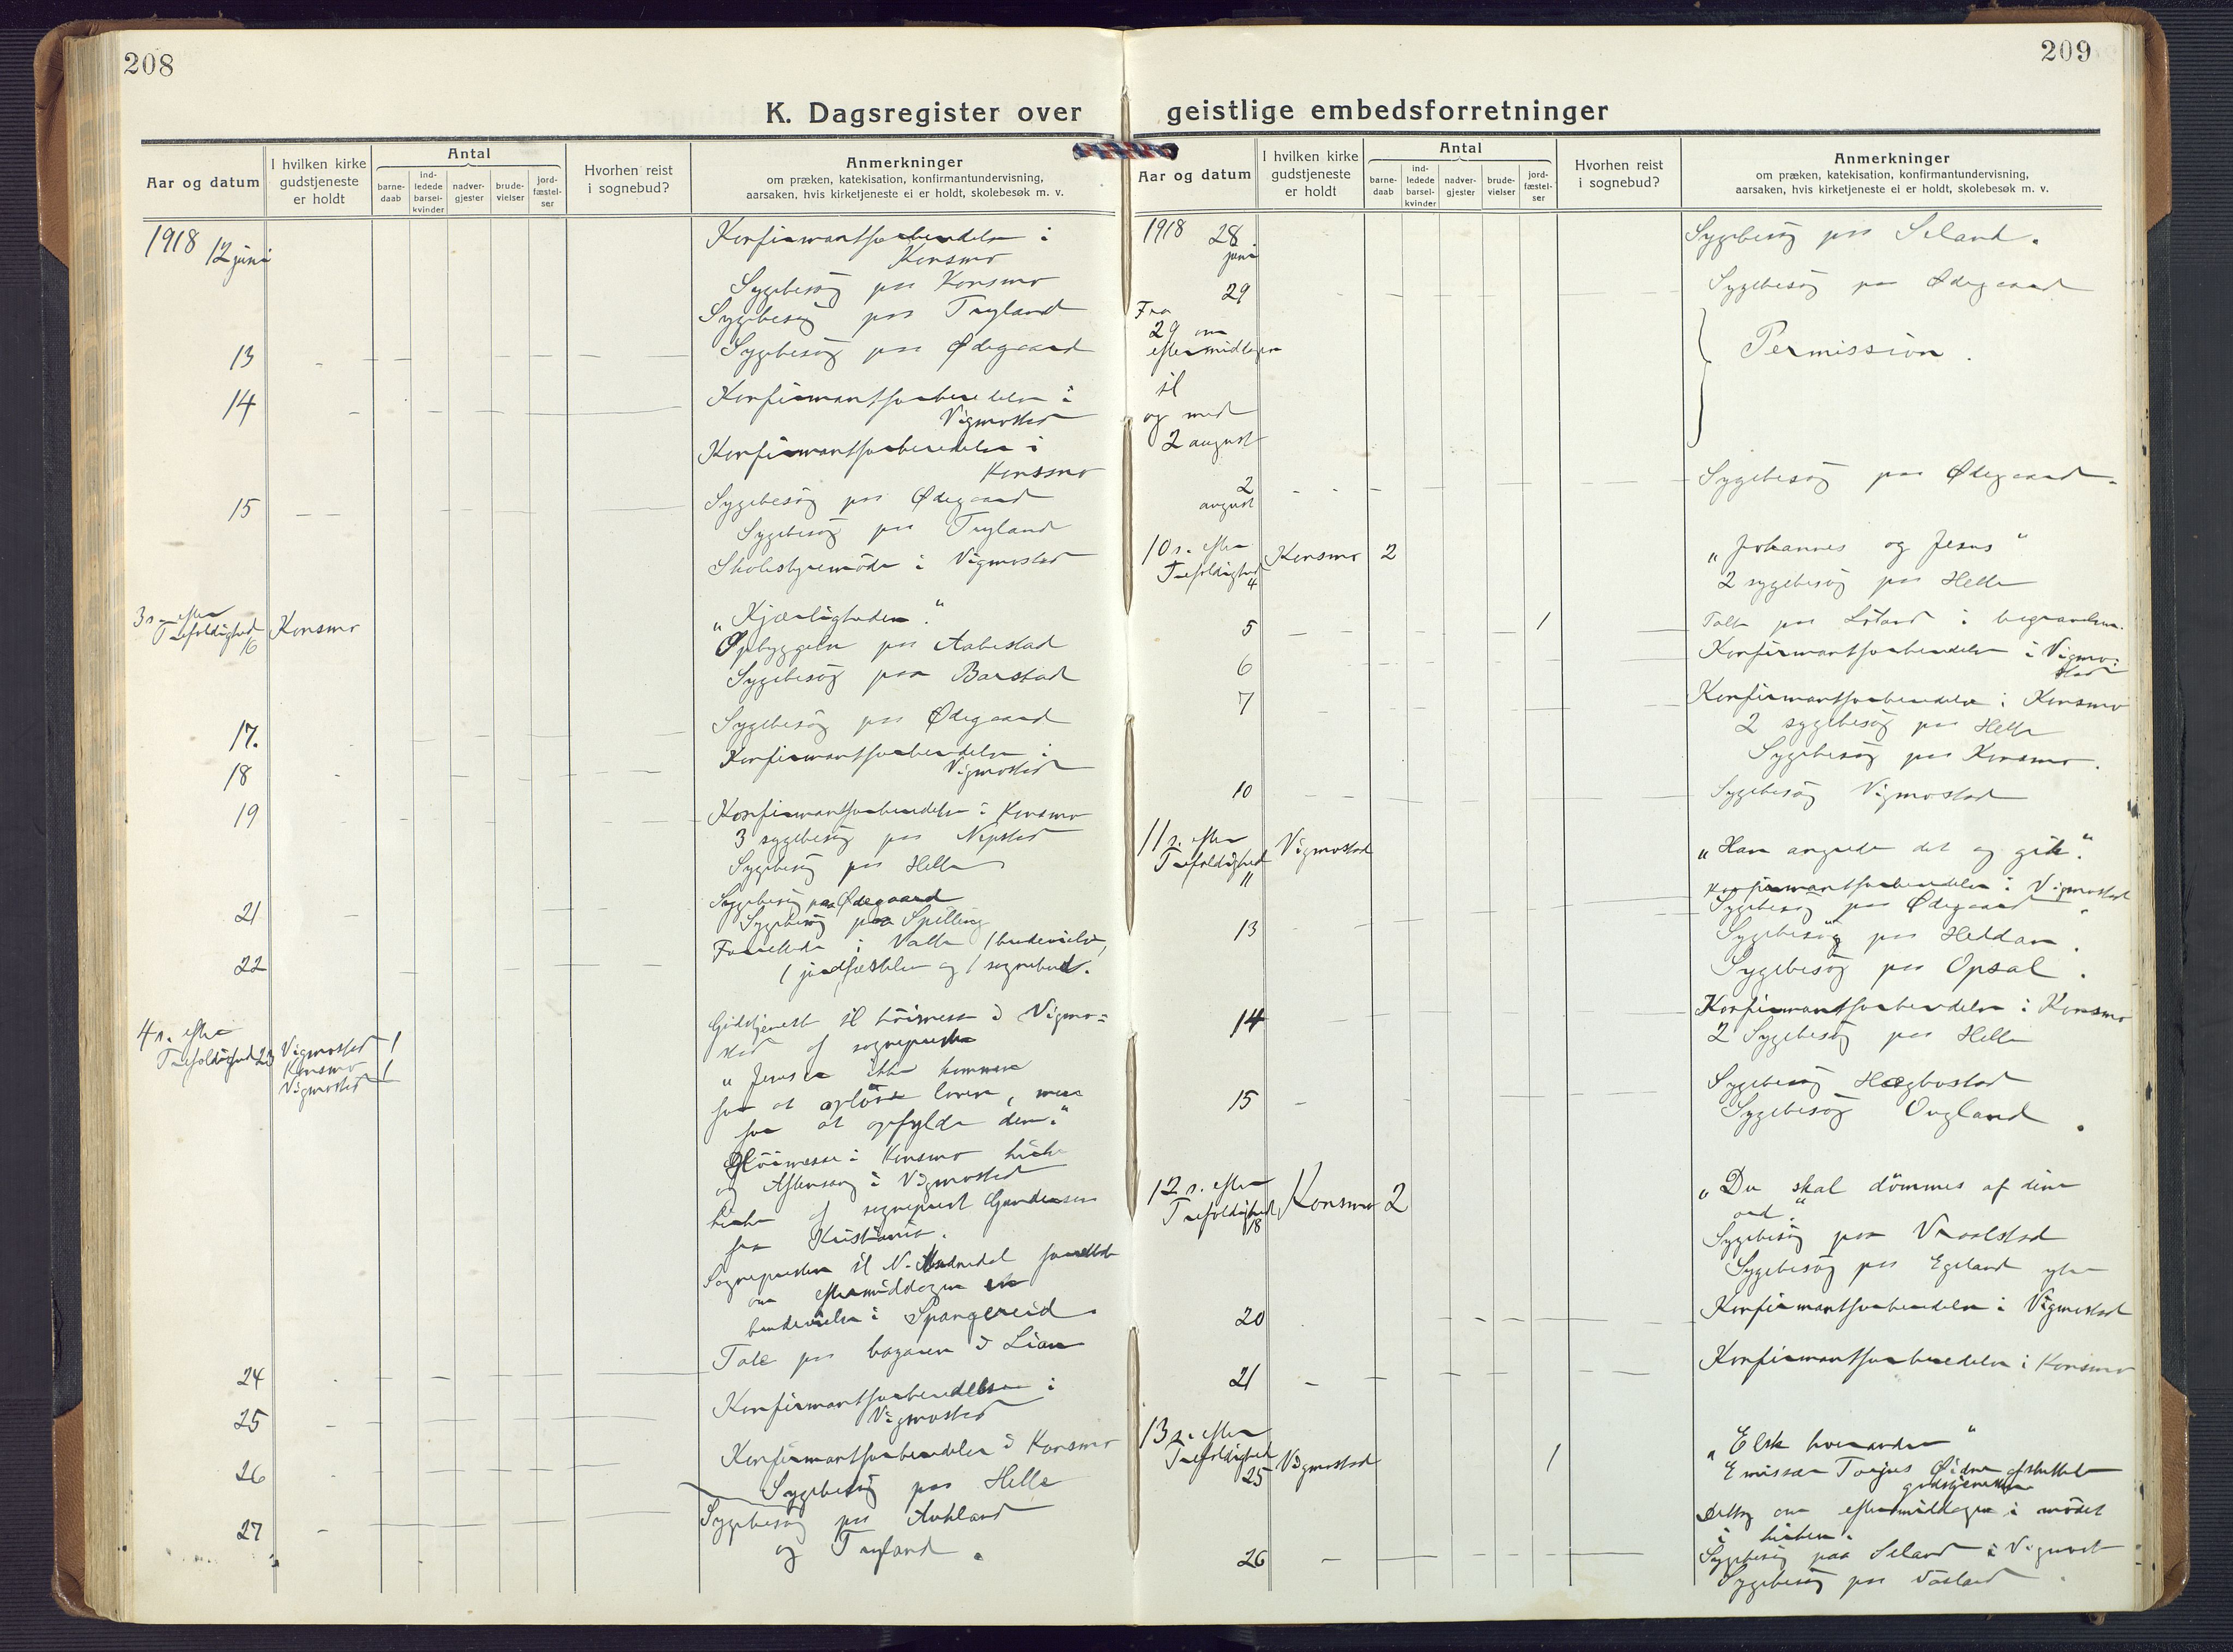 208
K. Dagsregister over
Aar og datum
I hvilken kirke
gudstjeneste
er holdt
Antal
barne-
daab
ind-
ledede
barsel-
kvinder
nadver-
gjester
brude-
vielser
jord-
fæstel-
ser
Hvorhen reist
i sognebud?
Anmerkninger
om præken, katekisation, konfirmantundervisning,
aarsaken, hvis kirketjeneste ei er holdt, skolebesøk m. v.
1918 12 juni
Konfirmantforberedelse i
Konsmo
Sygebesøg paa Konsmo
Sygebesøg paa Tryland
13
Sygebesøg paa Ødegaard
14
Konfirmantforberedelse i
Vigmostad
Konfirmantforberedelse i
Konsmo
15
Sygebesøg paa Ødegaard
Sygebesøg paa Tryland
Skolestyremøde i Vigmostad
3 s. efter
Trefoldighed
16
Konsmo
„Kjærligheden."
Opbyggelse paa Aabestad
Sygebesøg paa Barstad
17.
Sygebesøg paa Ødegaard
18
Konfirmantforberedelse i
Vigmostad
19
Konfirmantforberedelse i Konsmo
3 sygebesøg paa Nepstad
Sygebesøg paa Helle
21
Sygebesøg paa Ødegaard
Sygebesøg paa Spilling
22
Forrettede i Valle 1 brudevielse,
1 jordfæstelse og 1 sognebud.
4 s. efter
Trefoldighed 23
Vigmostad 1
Konsmo 1
Vigmostad
Gudstjeneste til høimesse i Vigmo=
stad af sognepresten
„Jesus er ikke kommen
for at opløse loven, men
for at opfylde den."
Høimesse i Konsmo kirke
og Aftensang i Vigmostad
kirke af sogneprest Gundersen
fra Kristiania.
Sognepresten til N. Audnedal forrettede
om eftermiddagen en
brudevielse i Spangereid.
24
Tale paa bazaren i Lian
25
Konfirmantforberedelse i
Vigmostad
26
Konfirmantforberedelse i Konsmo
Sygebesøg paa Helle
27
Sygebesøg paa
og Tryland.
209
geistlige embedsforretninger
Aar og datum
I hvilken kirke
gudstjeneste
er holdt
Antal
barne-
daab
ind-
ledede
barsel-
kvinder
nadver-
gjester
brude-
vielser
jord-
fæstel-
ser
Hvorhen reist
i sognebud?
Anmerkninger
om præken, katekisation, konfirmantundervisning,
aarsaken, hvis kirketjeneste ei er holdt, skolebesøk m. v.
1918 28
juni
Sygebesøg paa Seland.
29
Sygebesøg paa Ødegaard
Fra
29 om
eftermiddagen
til
og med
2 august
Permission.
2
august
Sygebesøg paa Ødegaard.
10 s. efter
Trefoldighed
4
Konsmo 2
„Johannes og Jesus"
2 sygebesøg paa Helle
5
1
Talte paa i begravelse.
6
Konfirmantforberedelse i Vigmo=
stad
7
Konfirmantforberedelse i Konsmo
2 sygebesøg paa Helle
Sygebesøg paa Konsmo.
10
Sygebesøg Vigmostad
11 s. efter
Trefoldighed
11
Vigmostad
„Han angrede det og gik."
13
Konfirmantforberedelse i Vigmostad
Sygebesøg paa Ødegaard
Sygebesøg paa Heddan.
Sygebesøg paa Opsal.
14
Konfirmantforberedelse i Konsmo
2 Sygebesøg paa Helle
15
Sygebesøg Hægbostad
Sygebesøg
12 s. efter
Trefoldighed
18
Konsmo 2
„Du skal dømmes af dine
ord."
Sygebesøg paa
Sygebesøg paa Egeland ytre
20
Konfirmantforberedelse i Vigmostad
21
Konfirmantforberedelse i Konsmo
13 s. efter
Trefoldighed
25
Vigmostad
1
„Elsk hverandre"
Emissær Torjus afsluttede
gudstjenesten
Deltog om eftermiddagen i mødet
i kirken.
26
Sygebesøg paa Seland i Vigmost
Sygebesøg paa